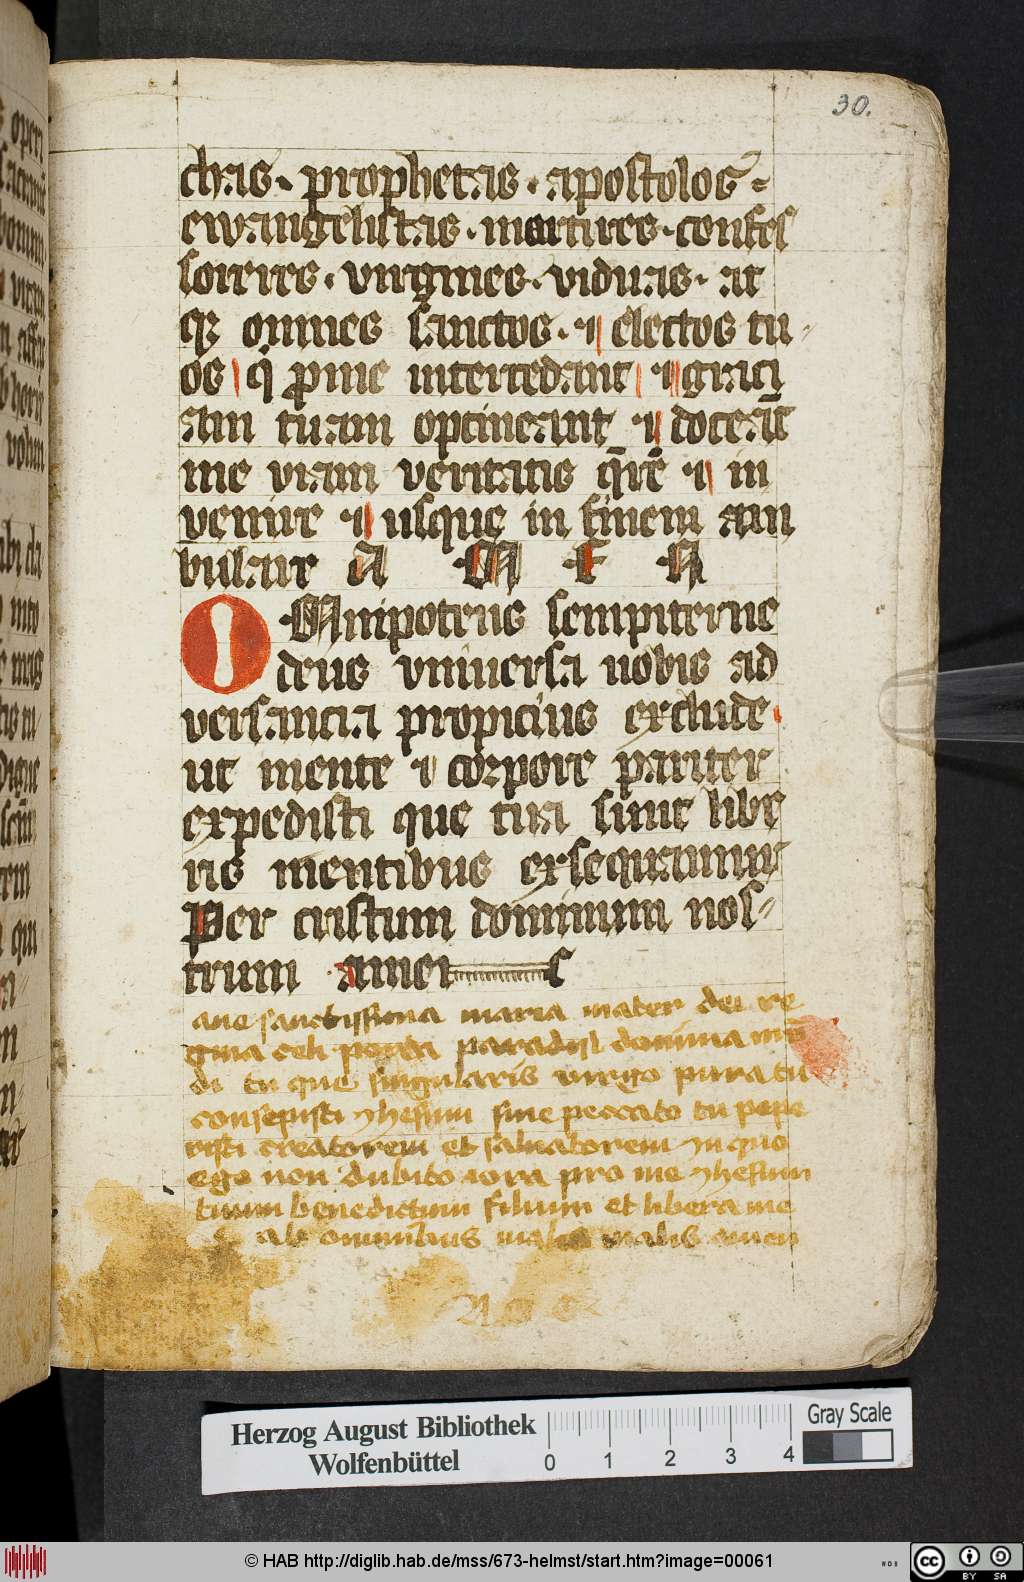 30.
chas · prophetas · apostolos ⸗
ewangelistas · martires · confes
sorres · virgines · viduas · at
qꝫ omnes sanctos · ⁊ electos tu⸗
os q̇ ꝓ me intercedant ⁊ graci
am tuam optineant ⁊ doceāt
me viam veritatis q̄rē ⁊ in
venire ⁊ usque in finem am
bulare A M E N
OMnipotens sempiterne
deus vniuersa nobis ad
versancia propicius exclude
ut mente ⁊ corpore pariter
expedisti que tua sunt libe
ris mentibus exsequamur
Per cristum dominum nos⸗
trum amen
aue sanctissima maria mater dei re
gina celi porta paradisi domina mū
di tu que singularis virgo pura tu
consepisti yhesum sine peccato tu pepe
risti creatorem et saluatorem in quo
ego non dubito ora pro me yhesum
tuum benedictum filium et libera me
ab omnibus malis malis amen
Herzog August Bibliothek
Wolfenbüttel
0 1 2 3 4
Gray Scale
© HAB http://diglib.hab.de/mss/673-helmst/start.htm?image=00061
cc BY SA